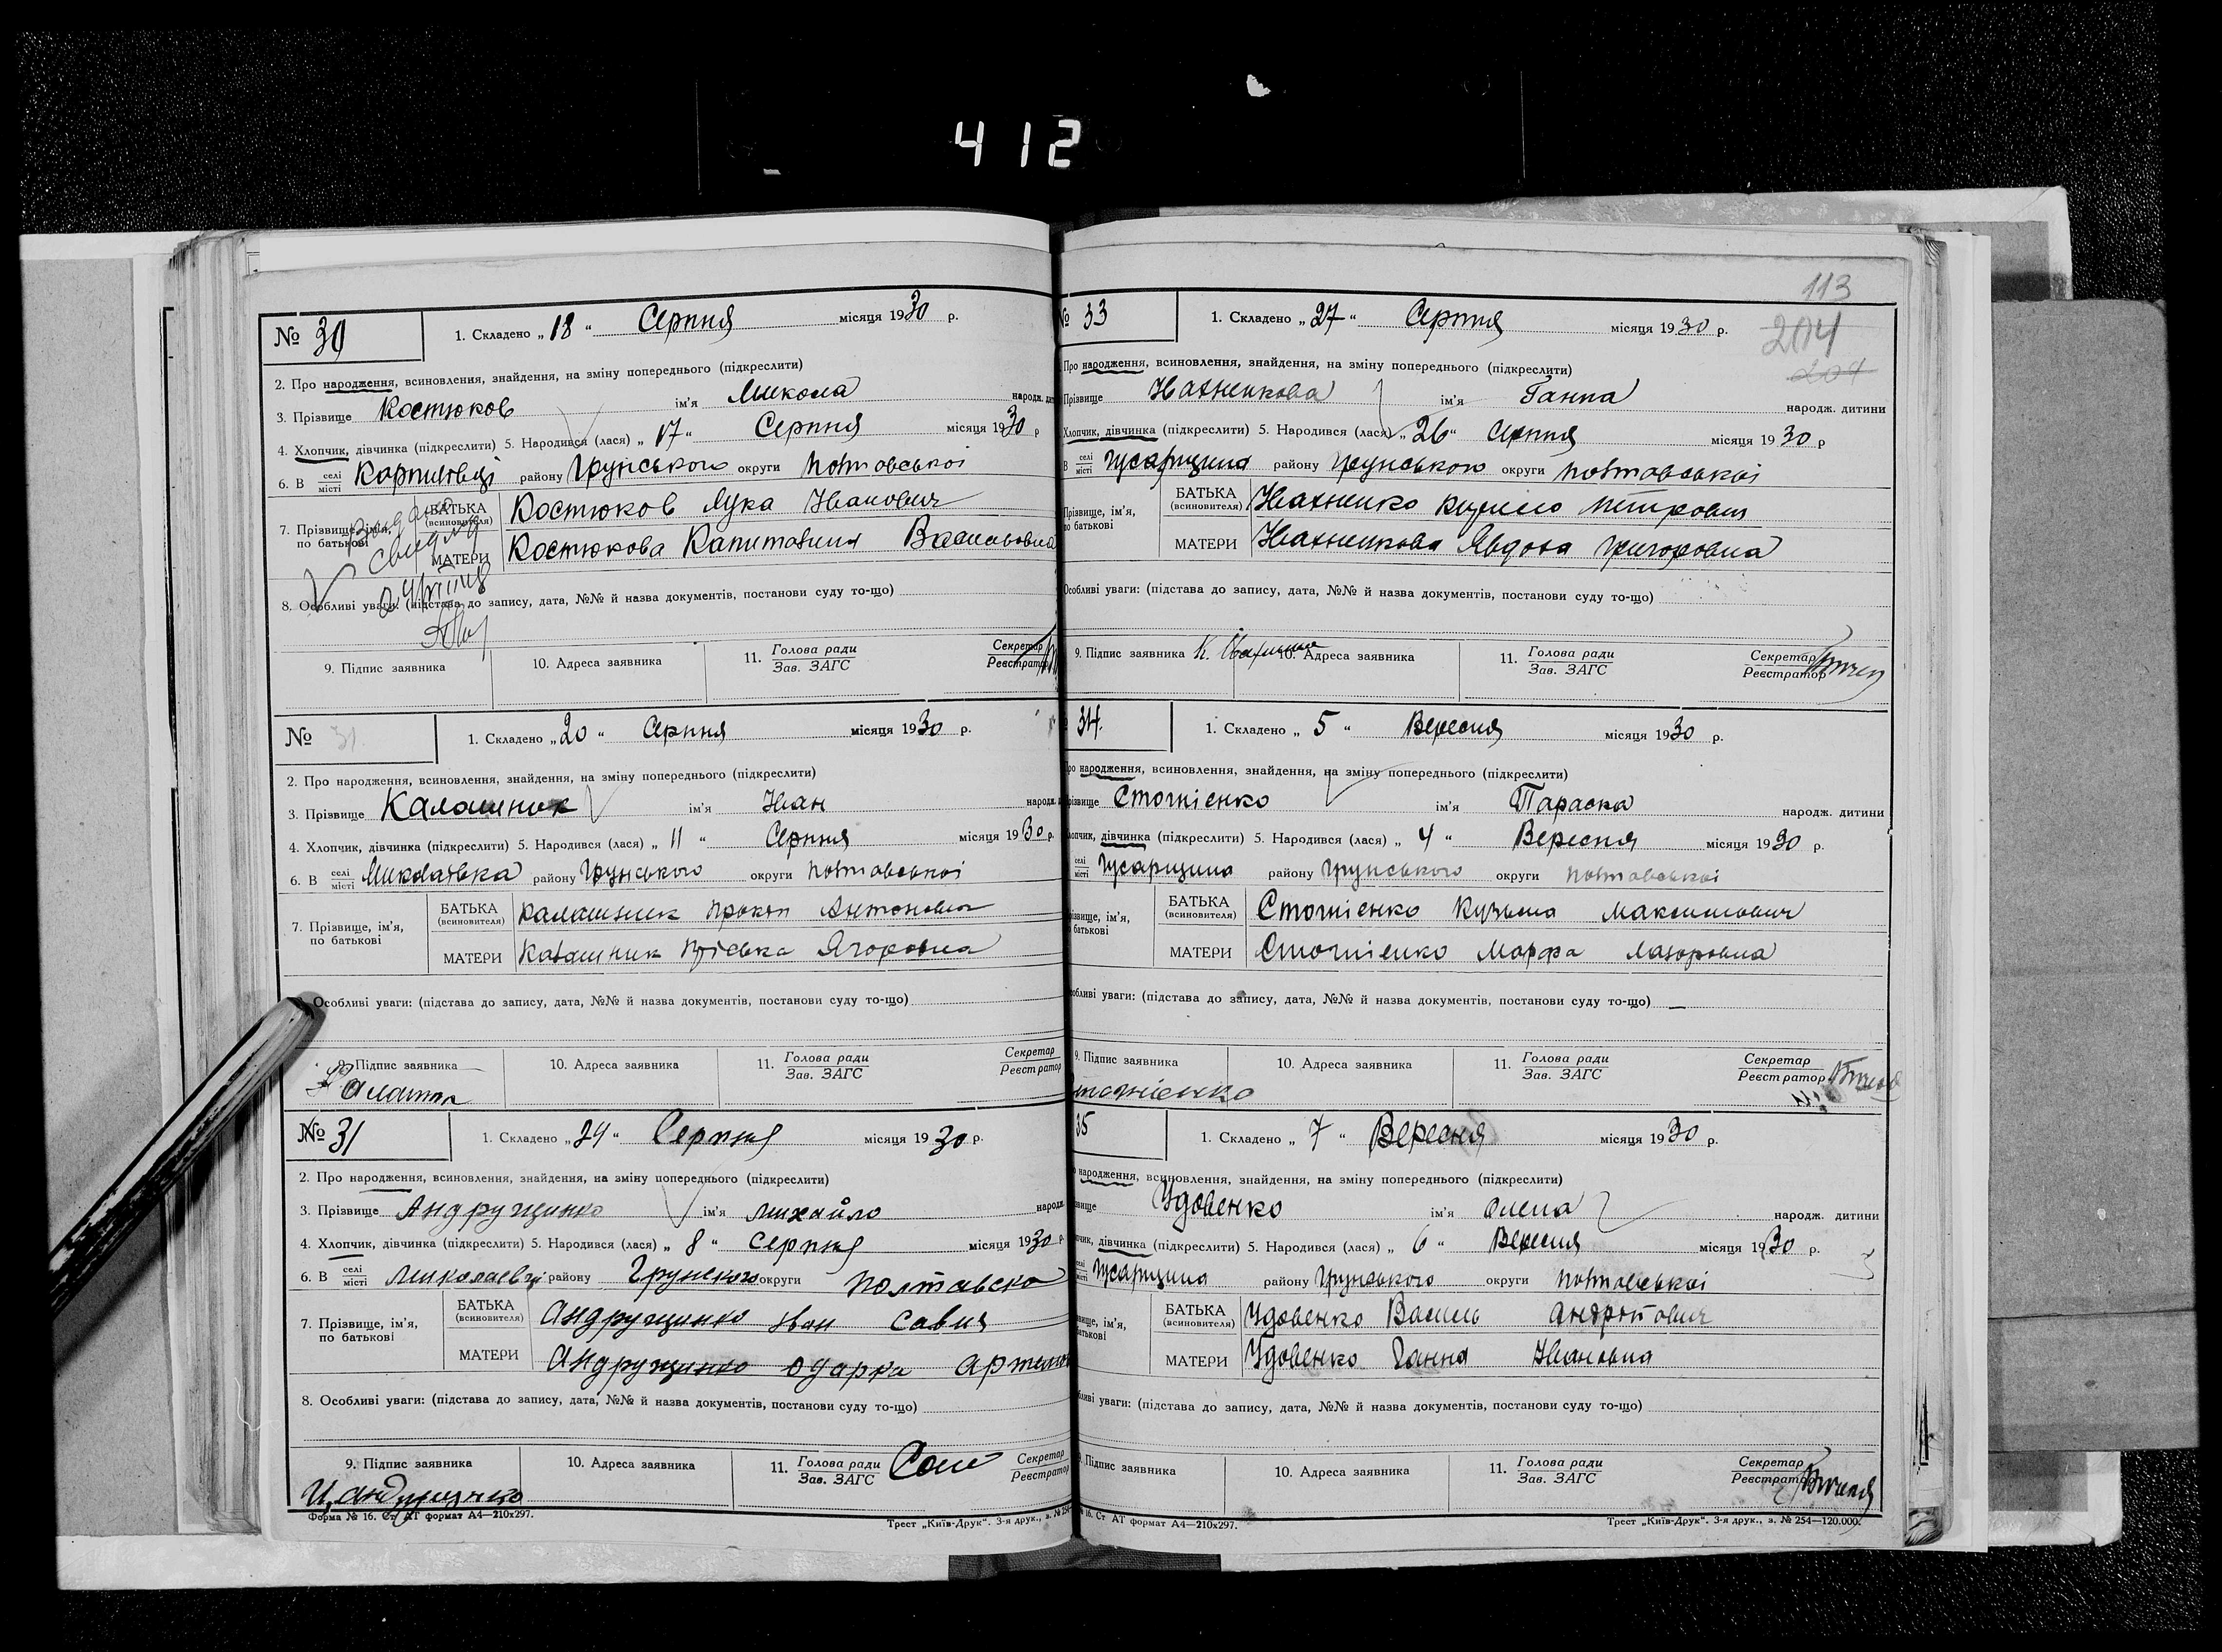 412
№ 30 1. Складено „ 18 “ Серпня місяця 1930 р.
2. Про народження, всиновлення, знайдення, на зміну попереднього (підкреслити)
3. Прізвище Костюков ім'я Микола народж.
4. Хлопчик, дівчинка (підкреслити) 5. Народився (лася) „ 17 “ Серпня місяця 1930 р
6. В селі місті району Грунського округи Полтавської
7. Прізвище, ім'я, по батькові БАТЬКА (всиновителя) Костюков Лука Іванович
МАТЕРИ Костюкова Капитолина Васильовна
8. Особливі уваги: (підстава до запису, дата, №№ й назва документів, постанови суду то-що)
9. Підпис заявника 10. Адреса заявника 11. Голова ради Зав. ЗАГС Секретар Реєстратор
№ 31 1. Складено „ 20 “ Серпня місяця 1930 р.
2. Про народження, всиновлення, знайдення, на зміну попереднього (підкреслити)
3. Прізвище Калашник ім'я Іван народж.
4. Хлопчик, дівчинка (підкреслити) 5. Народився (лася) „ 11 “ Серпня місяця 1930 р.
6. В селі місті Миколаївка району Грунського округи Полтавської
7. Прізвище, ім'я, по батькові БАТЬКА (всиновителя) Калашник Прокоп Антонович
МАТЕРИ Калашник Пріська Ягоровна
Особливі уваги: (підстава до запису, дата, №№ й назва документів, постанови суду то-що)
9. Підпис заявника 10. Адреса заявника 11. Голова ради Зав. ЗАГС Секретар Реєстратор
№ 31 1. Складено „ 24 “ Серпня місяця 1930 р.
2. Про народження, всиновлення, знайдення, на зміну попереднього (підкреслити)
3. Прізвище Андрущинко ім'я михайло народж.
4. Хлопчик, дівчинка (підкреслити) 5. Народився (лася) „ 8 “ серпня місяця 1930 р.
6. В селі місті миколаевці району Грунского округи полтавско
7. Прізвище, ім'я, по батькові БАТЬКА (всиновителя) Андрущинко Іван Савич
МАТЕРИ Андрущинко одарка
8. Особливі уваги: (підстава до запису, дата, №№ й назва документів, постанови суду то-що)
9. Підпис заявника 10. Адреса заявника 11. Голова ради Зав. ЗАГС Секретар Реєстратор
И. андрущинко
Форма № 16. Ст АТ формат А4—210x297. Трест „Київ-Друк“. 3-я друк., з. № 254
113
204
204
№ 33 1. Складено „ 27 “ Серпня місяця 1930 р.
Про народження, всиновлення, знайдення, на зміну попереднього (підкреслити)
Прізвище Івахненкова ім'я Ганна народж. дитини
Хлопчик, дівчинка (підкреслити) 5. Народився (лася) „ 26 “ Серпня місяця 1930 р
В селі місті Гусарщина району Грунського округи Полтавської
Прізвище, ім'я, по батькові БАТЬКА (всиновителя) Івахненко Кирило Петрович
МАТЕРИ Івахненкова Явдоха Григоровна
Особливі уваги: (підстава до запису, дата, №№ й назва документів, постанови суду то-що)
9. Підпис заявника 10. Адреса заявника 11. Голова ради Зав. ЗАГС Секретар Реєстратор
34. 1. Складено „ 5 “ Вересня місяця 1930 р.
народження, всиновлення, знайдення, на зміну попереднього (підкреслити)
Стогнієнко ім'я Параска народж. дитини
дівчинка (підкреслити) 5. Народився (лася) „ 4 “ Вересня місяця 1930 р.
селі місті Гусарщина району Грунського округи Полтавської
БАТЬКА (всиновителя) Стогнієнко Кузьма Максимович
МАТЕРИ Стогнієнко Марфа Лазоровна
уваги: (підстава до запису, дата, №№ й назва документів, постанови суду то-що)
9. Підпис заявника 10. Адреса заявника 11. Голова ради Зав. ЗАГС Секретар Реєстратор
35 1. Складено „ 7 “ Вересня місяця 1930 р.
народження, всиновлення, знайдення, на зміну попереднього (підкреслити)
Удовенко ім'я Олена народж. дитини
дівчинка (підкреслити) 5. Народився (лася) „ 6 “ Вересня місяця 1930 р.
Гусарщина району Грунського округи Полтавської
БАТЬКА (всиновителя) Удовенко Василь Андрійович
МАТЕРИ Удовенко Ганна Івановна
уваги: (підстава до запису, дата, №№ й назва документів, постанови суду то-що)
Підпис заявника 10. Адреса заявника 11. Голова ради Зав. ЗАГС Секретар Реєстратор
16. Ст АТ формат А4—210x297. Трест „Київ-Друк“. 3-я друк., з. № 254—120.000.